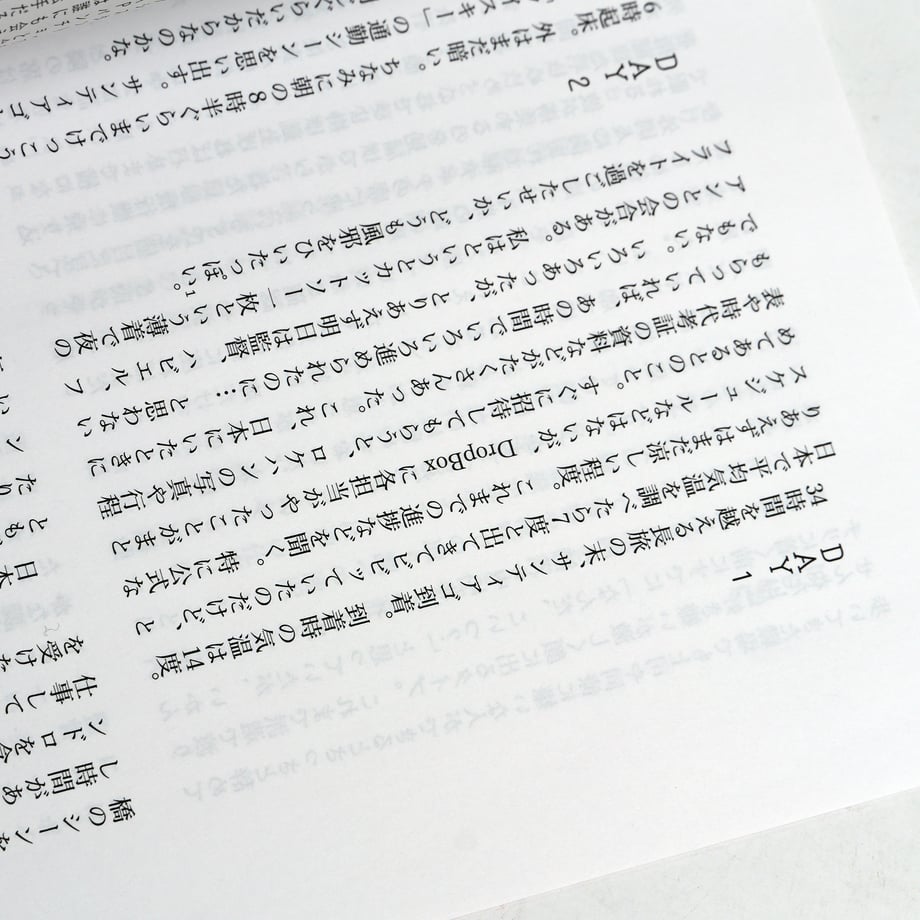 DAY 1
34時間を越える長旅の末、サンティアゴ到着。到着時の気温は14度。
日本で平均気温を調べたら7度と出てきてビビッていたのだけど、と
りあえずはまだ涼しい程度。これまでの進捗などを聞く。特に公式な
スケジュールなどはないが、DropBoxに各担当がやったことがまと
めてあるとのこと。すぐに招待してもらうと、ロケハンの写真や行程
表や時代考証の資料などがたくさんあった。これ日本にいたときに
もらっていれば、あの時間でいろいろ進められたのに…と思わない
でもない。いろいろあったが、とりあえず明日は監督、ハビエル、フ
アンとの会合がある。私はというとカットソー一枚という薄着で夜の
フライトを過ごしたせいか、どうも風邪をひいたっぽい。1
DAY 2
6時起床。外はまだ暗い。ちなみに朝の8時半ぐらいまでけっこう
イスキー」の通勤シーンを思い出す。サンティアゴ
ぐらいだからなのかな。
橋のシーンを
し時間があ
ンドロを
仕事して
を受けた
日本
とも
たり
ン